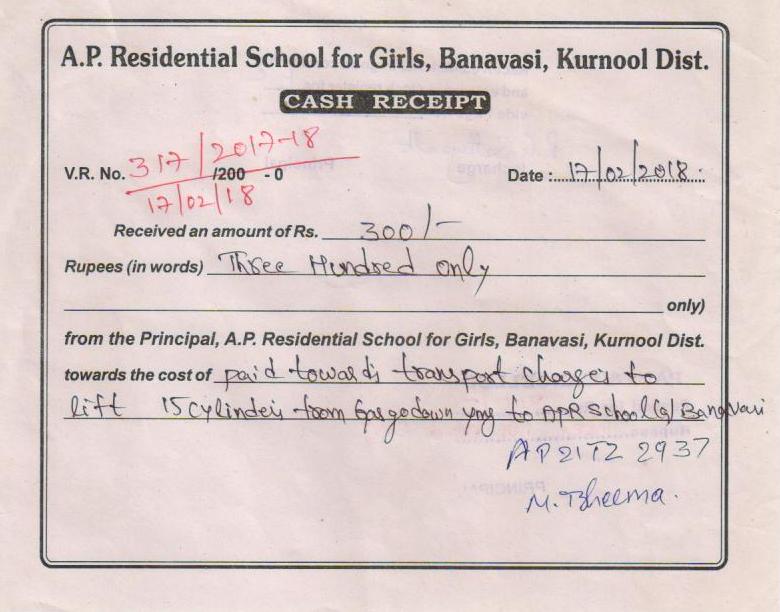 A.P. Residential School for Girls, Banavasi, Kurnool Dist.
CASH RECEIPT
317/2017-18
V.R. No. /200 - 0 Date : 17/02/2018
17/02/18
Received an amount of Rs. 300/-
Rupees (in words) Three Hundred only
only)
from the Principal, A.P. Residential School for Girls, Banavasi, Kurnool Dist.
towards the cost of paid towards transport charges to
lift 15 cylinders from Gas godown yng to APR School (G) Banavasi
AP21TZ 2937
M. Bheema.